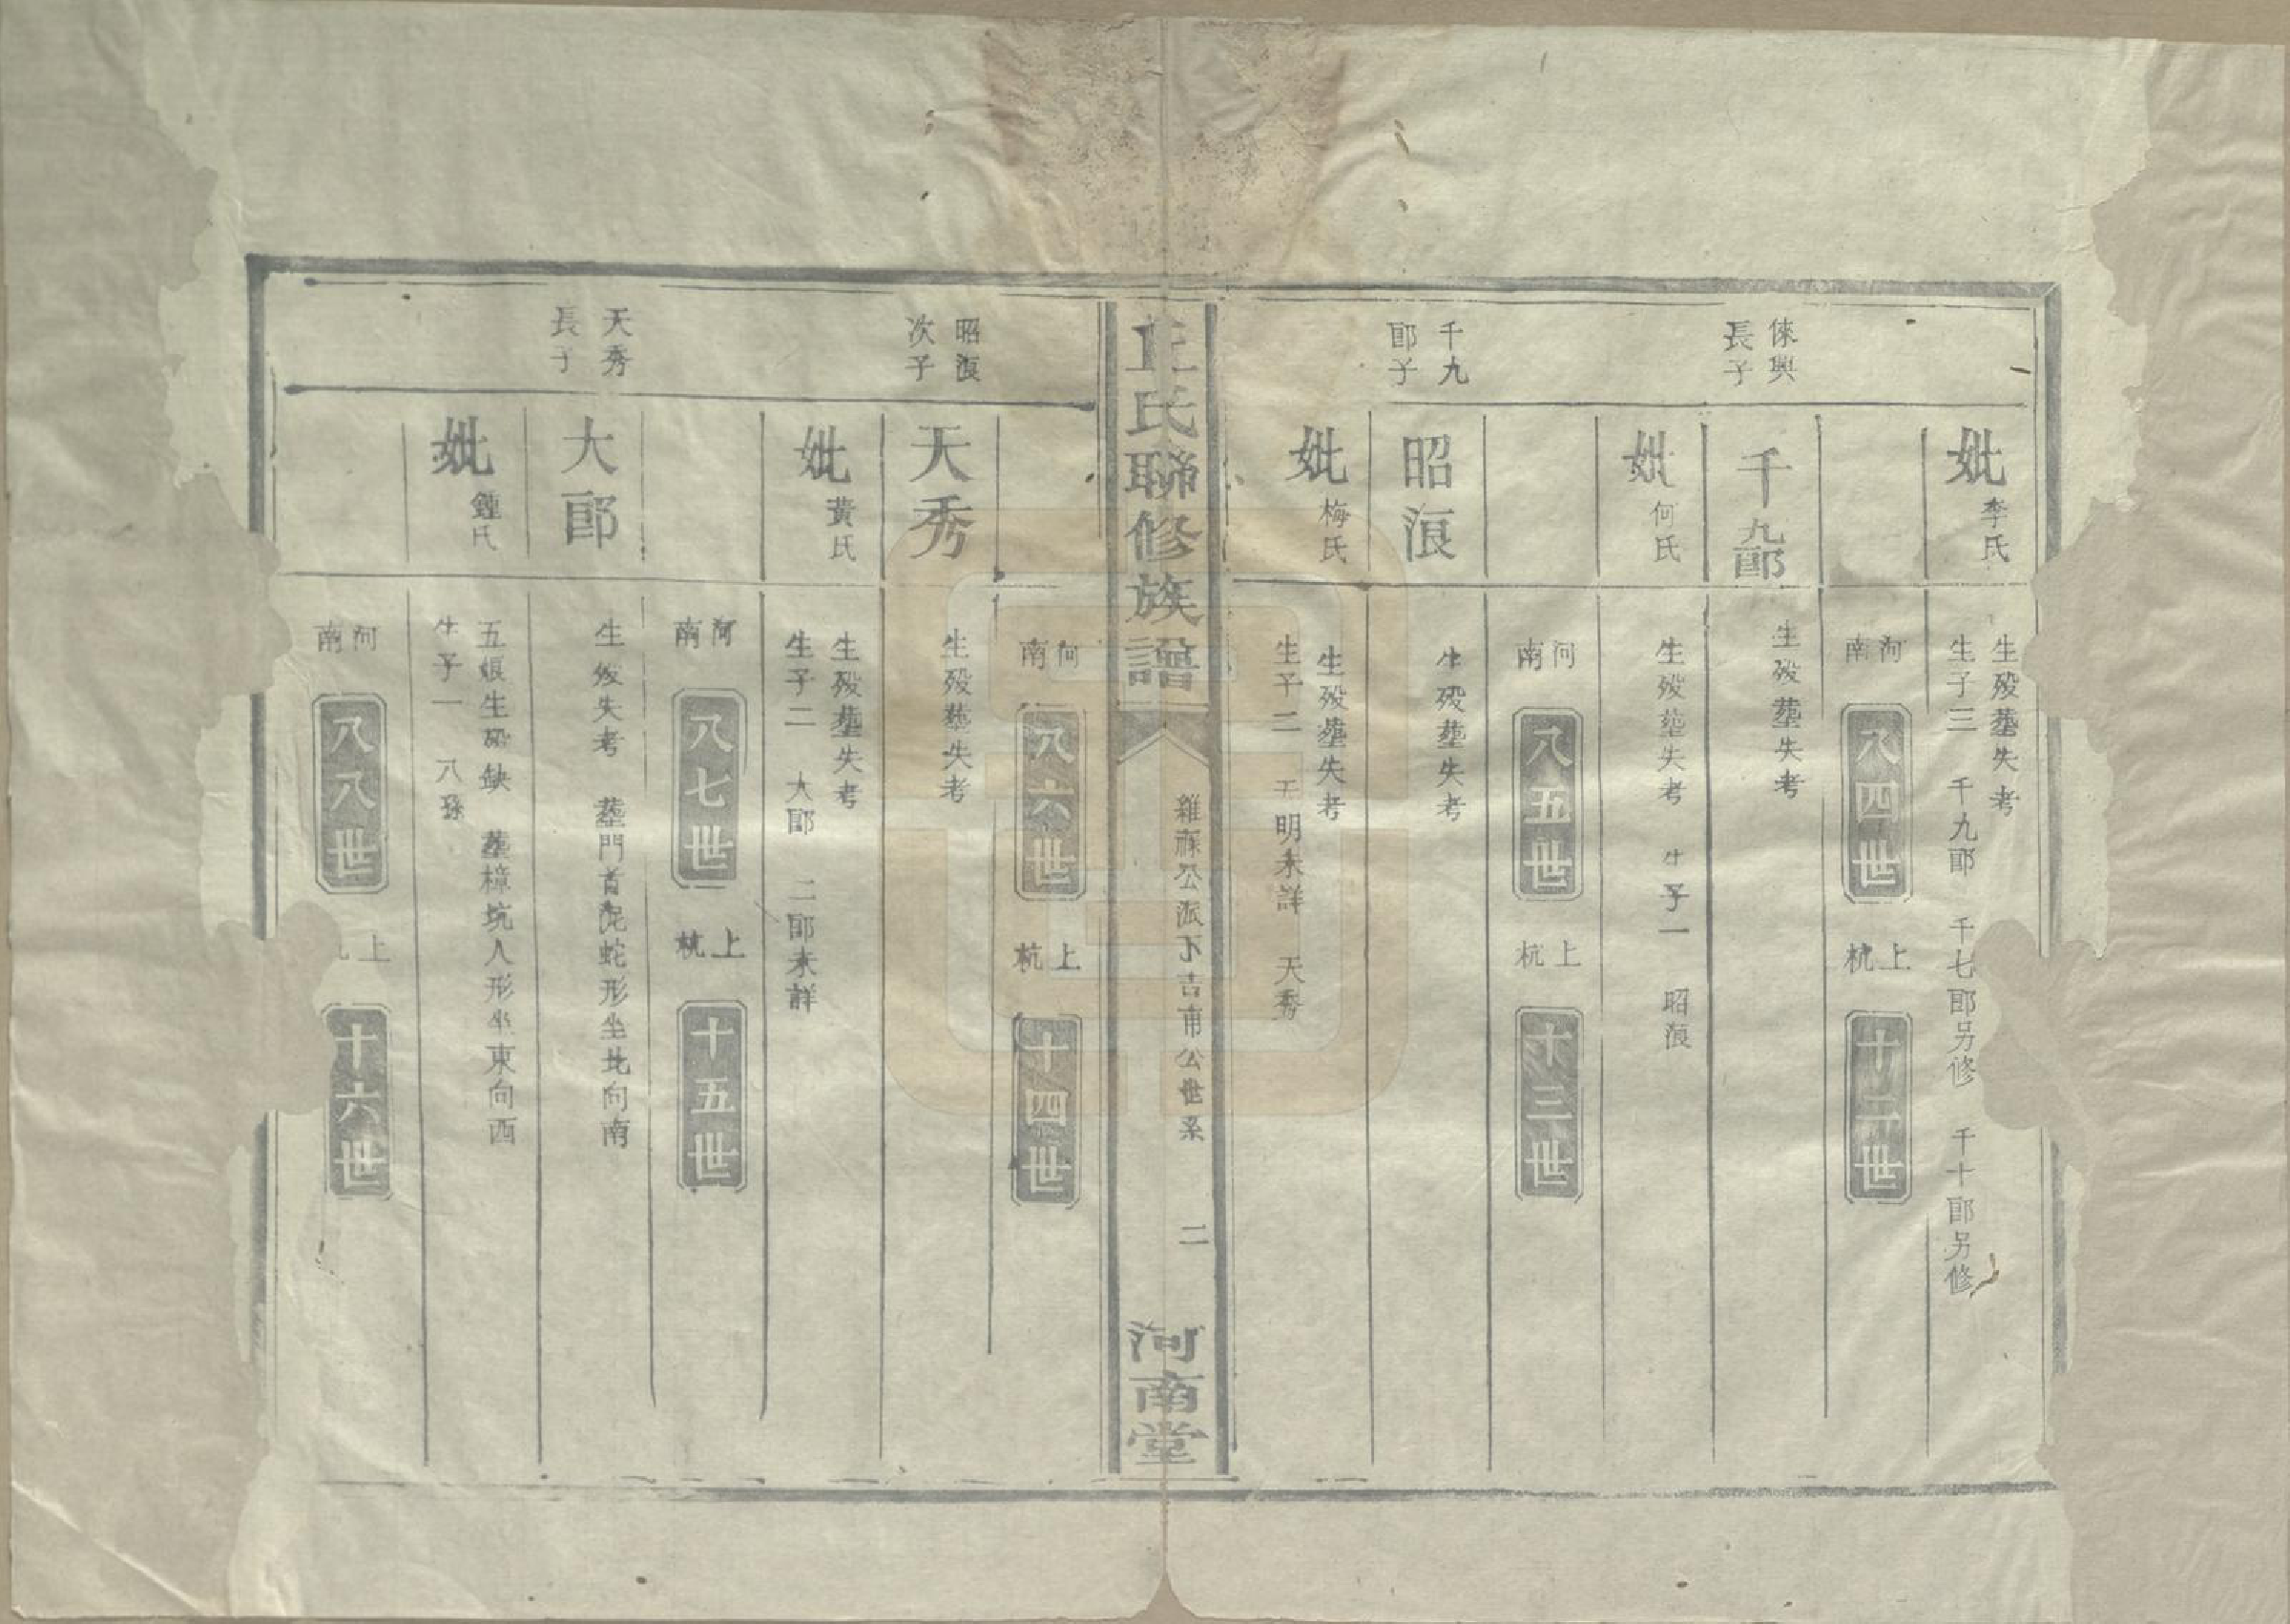 妣 李氏 生歿塟失考
生子三 千九郎 千七郎另修 千十郎另修
河南 八四世 上杭 十二世
倈興長子 千九郎 生歿塟失考
妣 何氏 生歿塟失考 生子一 昭浪
河南 八五世 上杭 十三世
千九郎子 昭浪 生歿塟失考
妣 梅氏 生歿塟失考
生子二 天明未詳 天秀
丘氏聯修族譜 公派下吉甫公世系 二 河南堂
河南 八六世 上杭 十四世
昭浪次子 天秀 生歿塟失考
妣 黃氏 生歿塟失考
生子二 大郎 二郎未詳
河南 八七世 上杭 十五世
天秀長子 大郎 生歿失考 塟門首 蛇形坐北向南
妣 鍾氏 五娘生歿缺 塟樟坑人形坐東向西
生子一 八孫
河南 八八世 上 十六世